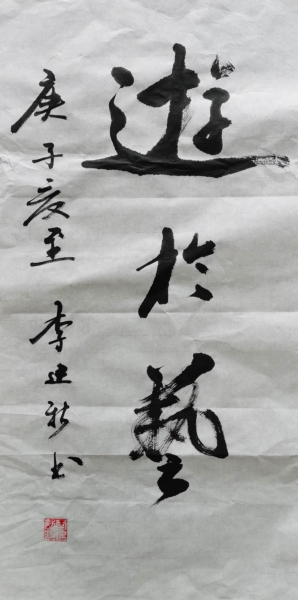 遊於藝
庚子夏至 李建新书